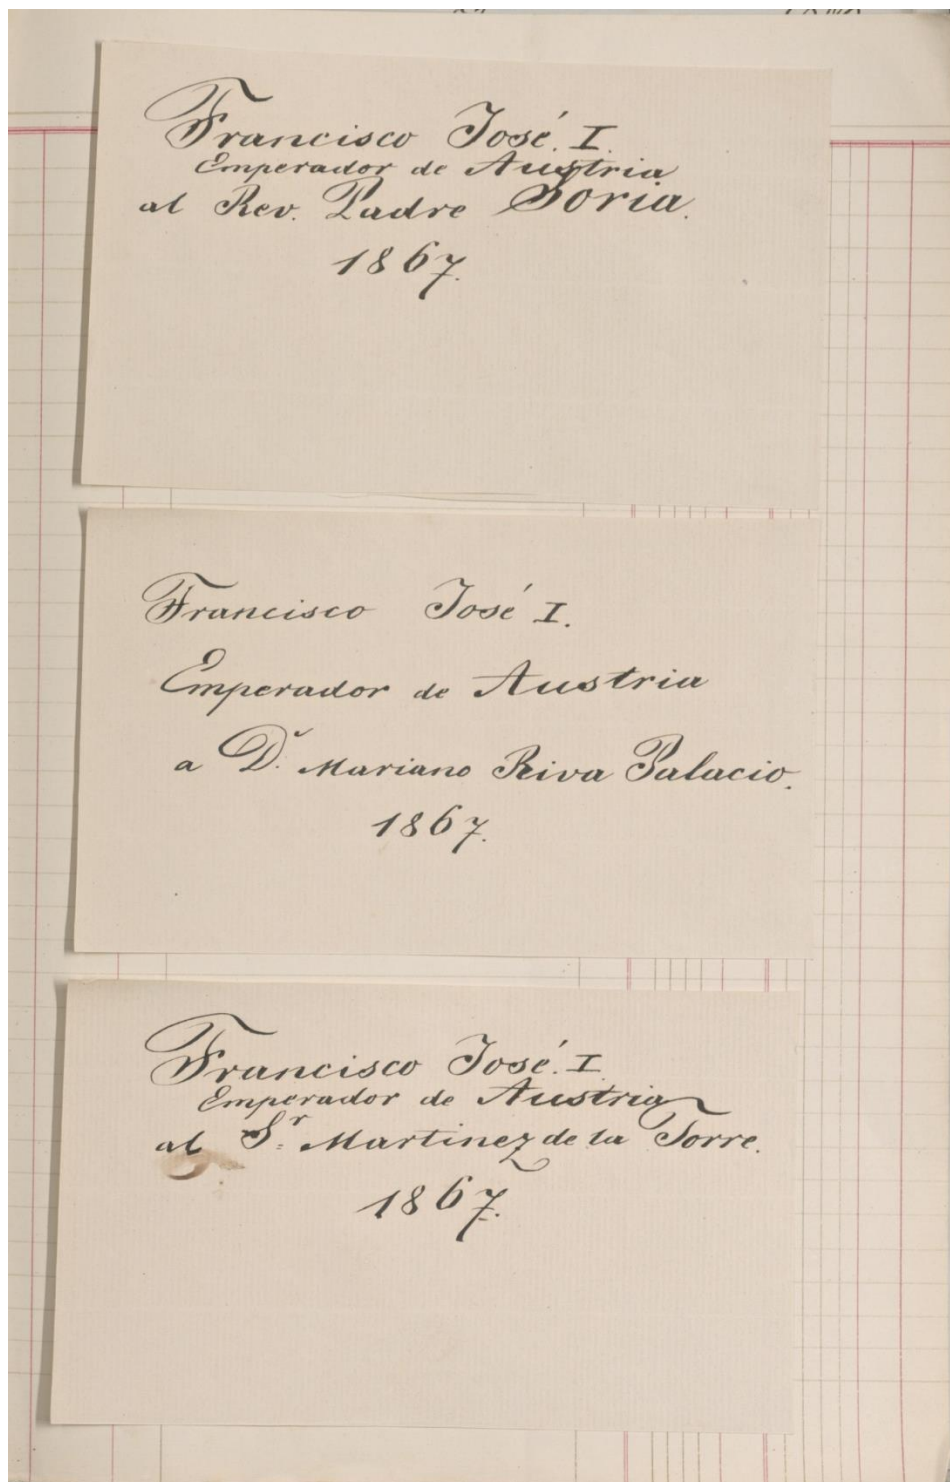 Francisco José. I.
Emperador de Austria
al Rev. Padre Soria.
1867.
Francisco José I.
Emperador de Austria
a D. Mariano Riva Palacio.
1867.
Francisco José. I.
Emperador de Austria
al Sr. Martinez de la Torre.
1867.